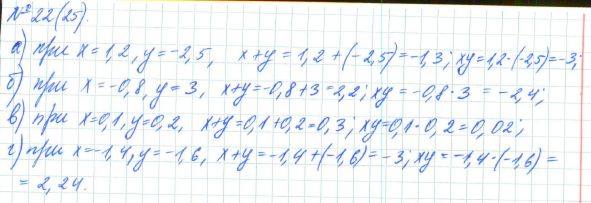 №22(25).
а) при x=1,2, y=-2,5, x+y=1,2+(-2,5)=-1,3; xy=1,2·(-2,5)=-3;
б) при x=-0,8, y=3, x+y=-0,8+3=2,2; xy=-0,8·3=-2,4;
в) при x=0,1, y=0,2, x+y=0,1+0,2=0,3; xy=0,1·0,2=0,02;
г) при x=-1,4, y=-1,6, x+y=-1,4+(-1,6)=-3; xy=-1,4·(-1,6)=
=2,24.